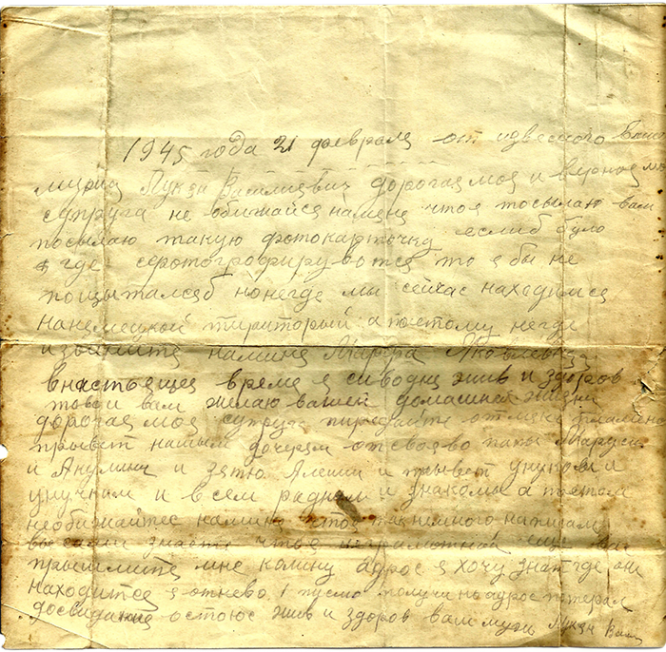 1945 года 21 февраля от извесного
Лукян Василиевич дорогая моя и верноя
супруга не обижайся намена что я посылаю вам
посылаю такую фотокарточку еслиб було
где сфотографируватся то я бы не
нонегде мы сейчас находимся
нанемецкой територый а поетому негде
извините намине Марфа Яковлевна
внастоящея время я сиводня жив и здоров
тово и вам желаю вашей домашней жизни
дорогая моя супруга пиридайте отмене
прывет нашым дочерям отсвоево папы Маруси
и Акулини и зятю Алеши и прывет унукови и
унучкам и всем радным и знакомы а потом
необижайтес намине што немного написал
вы сами знаете что я неграмотной еще
прышлите мне адрос я хочу знат где он
находится я отнево 1 писмо получи но адрос потерал
досвидание остаюс жив и здоров ваш муж Лукян Вас